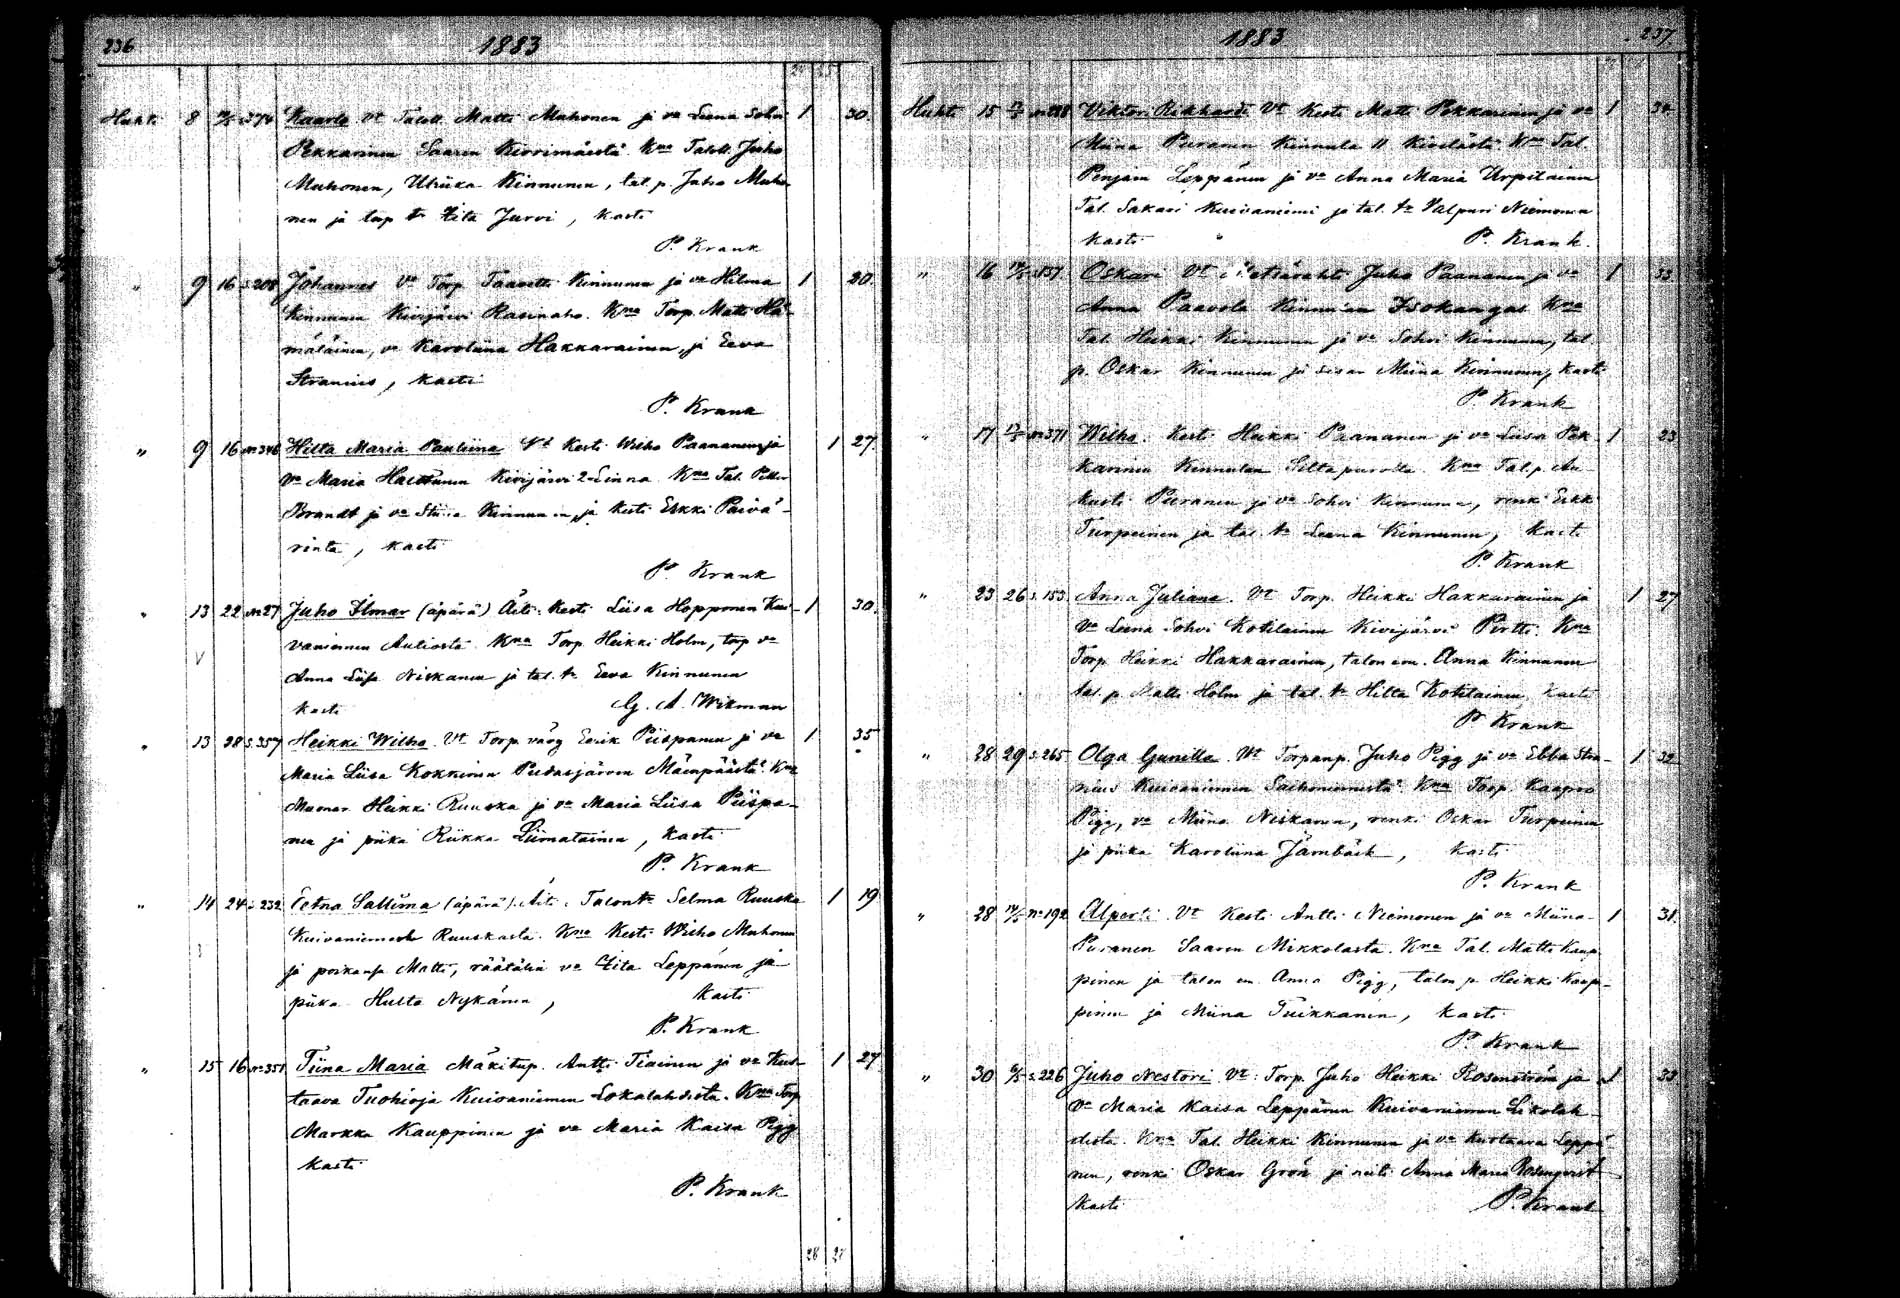 236
1883
Huhti 8 s.374 Kaarlo Vt Taloll. Matti Muhonen ja vo Leena Sohvi 1 30.
Pekkarinen Saaren Kirrimäestä. Kna Taloll. Juho
Muhonen, Ulriika Kinnunen, tal. p. Juho Muho-
nen ja torp tr Iita Jurvi, kasti
P. Krank
" 9 16 s.208 Johannes Vt Torp. Taavetti Kinnunen ja vo Hilma 1 20.
Kinnunen Kivijärvi Rasinaho. Kna Torp. Matti Hä-
mäläinen, vo Karoliina Hakkarainen, ja Eeva
Stranius, kasti
P. Krank
" 9 16 n:346 Hilta Maria Pauliina Vt Kesti Wilho Paananen ja 1 27.
vo Maria Hacttunen Kivijärvi 2 Linna Kna Tal. Petter
Brandt ja vo Stiina Kinnunen, ja Kesti Erkki Päivä-
rinta, kasti
P. Krank
" 13 22 n:27 Juho Ilmar (äpärä) Äiti: Kesti Liisa Hopponen Kui- 1 30.
vaniemen Autiosta Kna Torp. Heikki Holm, torp vo
Anna Liisa Niskanen ja tal. tr Eeva Kinnunen
kasti G. A. Wikman
" 13 28 s.357 Heikki Wilho Vt Torp. väög Eerik Piispanen ja vo 1 35
Maria Liisa Kokkinen Pudasjärven Mäenpäästä. Kna
Muonar. Heikki Ruuska ja vo Maria Liisa Piispa-
nen ja piika Riikka Liimatainen, kasti
P. Krank
" 14 24 s.232 Eetna Sallima (äpärä). Äiti: Talon tr Selma Ruuska 1 19
Kuivaniemen Ruuskasta. Kna Kesti Wilho Muhonen
ja poikansa Matti, räätälin vo Iita Leppänen ja
piika Hulta Nykänen, kasti
P. Krank
" 15 16 n:351 Tiina Maria Mäkitup. Antti Tiainen ja vo Kus- 1 27
taava Tuohioja Kuivaniemen Lokalahdista. Kna Torp
Markka Kauppinen ja vo Maria Kaisa Pigg
kasti
P. Krank
1883
237.
Huhti 15 Viktori Rikhardi Vt Kesti Matti Pekkarinen ja vo 1 34.
Miina Puranen Kinnula 11 Kivelästä Kna Tal.
Penjam Leppänen ja vo Anna Maria Urpilainen
Tal. Sakari Kuivaniemi ja tal. tr Valpuri Niemonen
kasti P. Krank.
" 16 s.157 Oskari Vt Juho Paananen ja vo 1 33.
Anna Paavola Kinnulan Isokangas Kna
Tal. Heikki Kinnunen ja vo Sohvi Kinnunen, tal.
p. Oskar Kinnunen ja sisar Miina Kinnunen, kasti
P. Krank
" 17 n:371 Wilho. Kesti Heikki Paananen ja vo Liisa Pek- 1 23
karinen Kinnulan Siltapurolta Kna Tal. p. Au-
kusti Puranen ja vo Sohvi Kinnunen, renki Erkki
Turpeinen ja tal. tr Leena Kinnunen, kasti
P. Krank
" 23 26 s.153 Anna Juliana. Vt Torp. Heikki Hakkarainen ja 1 27
vo Leena Sohvi Kotilainen Kivijärvi Pirtti. Kna
Torp. Heikki Hakkarainen, talon em. Anna Kinnunen
tal. p. Matti Holm ja tal. tr Hilta Kotilainen, kasti
P. Krank
" 28 29 s.265 Olga Gunilla. Vt Torpanp. Juho Pigg ja vo Ebba Stra- 1 32
nius Kuivaniemen Kna Torp. Kaapro
Pigg, vo Miina Niskanen, renki Oskar Turpeinen
ja piika Karoliina Jämbäck, kasti
P. Krank
" 28 n:192 Alpertti Vt Kesti Antti Niemonen ja vo Miina 1 31.
Puranen Saaren Mikkolasta. Kna Tal. Matti Kaup-
pinen ja talon em. Anna Pigg, talon p. Heikki Kaup-
pinen ja Miina Tuikkanen, kasti
P. Krank
" 30 s.226 Juho Nestori Vt: Torp. Juho Heikki Rosenström ja 1 33
vo Maria Kaisa Leppänen Kuivaniemen Likolah-
dista. Kna Tal. Heikki Kinnunen ja vo Kustaava Leppä-
nen, renki Oskar Grön ja neiti Anna Maria Rosenqvist
kasti P. Krank